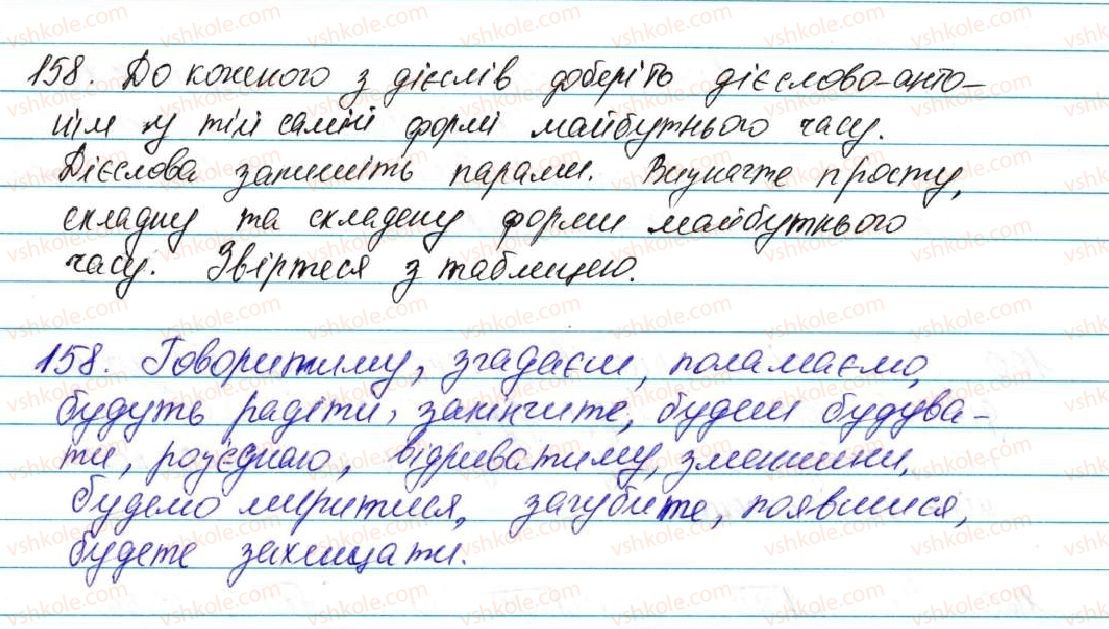 158. До кожного з дієслів доберіть дієслово-анто-
нім у тій самій формі майбутнього часу.
Дієслова запишіть парами. Визначте просту,
складну та складену форми майбутнього
часу. Звіртеся з таблицею.
158. Говоритиму, згадаєш, поламаємо,
будуть радіти, закінчите, будеш будува-
ти, роз'єднаю, відриватиму, зменшиш,
будемо миритися, загубите, появишся,
будете захищати.
vshkole.com